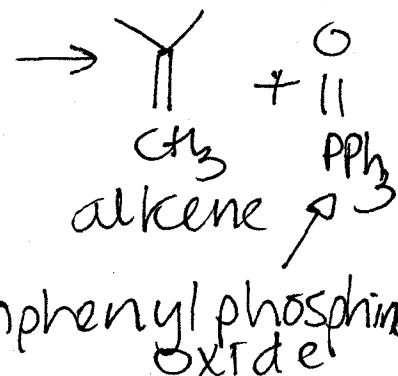 O
+
CH3 PPh3
alkene
nphenylphosphin
oxide